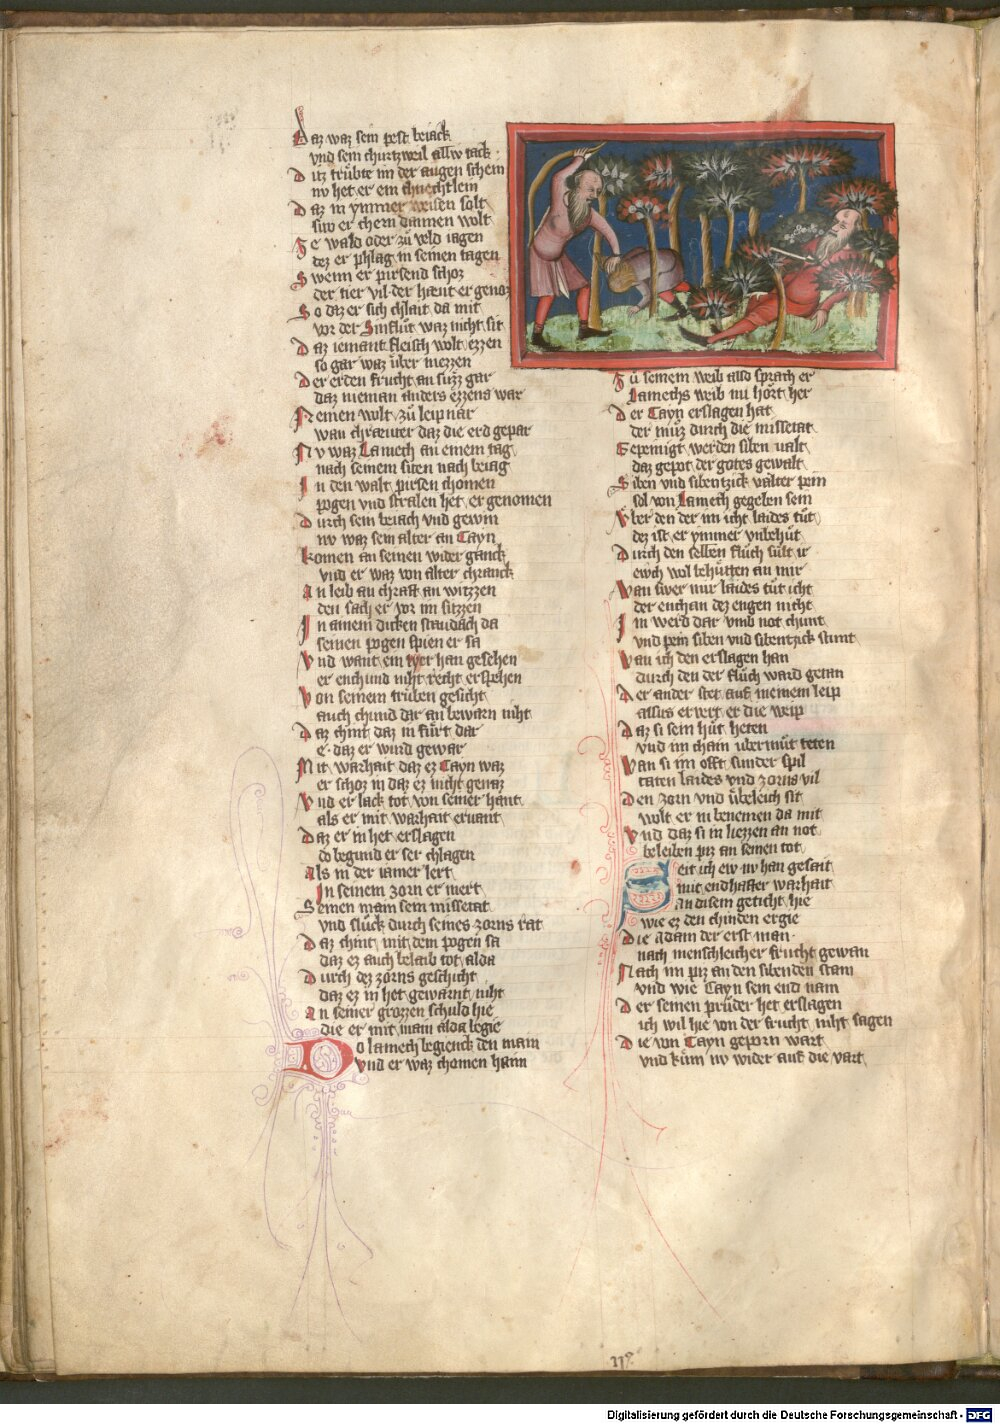 Daz waz sein pest beiack
vnd sein churtzweil allw tack
Ditz trübte im der augen schein
nv het er ein chnechtlein
Daz in ymmer weisen solt
swo er chern dannen wolt
Ze wald oder zů veld iagen
dez er phlag in seinen tagen
Swenn er pirsend schoz
der tier vil der haut er genoz
So daz er sich chlait da mit
vor der Sinflůt waz nicht sit
Daz iemant fleisch wolt ezzen
so gar waz über mezzen
Der erden frucht an süzz gar
daz nieman anders ezzens war
Nemen wolt zů leip nar
wan chrawter daz die erd gepar
Nv waz Lamech an einem tag
nach seinem siten nach beiag
In den walt pirsen chomen
pogen vnd stralen het er genomen
Durch sein beiach vnd gewin
nv waz sein alter an Cayn
Komen an seinen wider ganck
vnd er waz von alter chranck
An leib an chraft an witzzen
den sach er vor im sitzzen
In ainem dicken staudach da
seinen pogen spien er sa
Vnd want ein tyer han gesehen
er enchund niht recht erspehen
Von seinem trüben gesicht
auch chund dar an bewarn niht
Daz chint daz in fůrt dar
e daz er wurd gewar
Mit warhait daz ez Cayn waz
er schoz in daz ez nicht genaz
Vnd er lack tot von seiner hant
als er mit warhait ervant
Daz er in het erslagen
do begund er ser chlagen
Als in der iamer lert
In seinem zorn er mert
Seinen main sein missetat
vnd slůck durch seines zorns rat
Daz chint mit dem pogen sa
daz ez auch belaib tot alda
Durch dez zorns geschicht
daz ez in het gewarnt niht
An seiner grozzen schuld hie
die er mit main alda begie
Do lamech begienck den main
vnd er waz chomen haim
Zů seinem weib alsd sprach er
Lamechs weib nu hört her
Der Cayn erslagen hat
der můz durch die missetat
Gepeinigt werden siben valt
daz gepot der gotes gewalt
Siben vnd sibentzick valter pein
sol von Lamech gegeben sein
Vber den der im icht laides tůt
dez ist er ymmer vnbehůt
Durch den selben flůch sült ir
ewch wol behütten an mir
Wan swer mir laides tůt icht
der enchan dez engen nicht
Im werd dar vmb not chunt
vnd pein siben vnd sibentzick stunt
Wan ich den erslagen han
durch den der flůch ward getan
Der ander stet auf meinem leip
alsus ervert er die weip
Daz si sein hůt heten
vnd im chain vbermůt teten
Wan si im offt sunder spil
taten laides vnd zorns vil
Den zorn vnd übeleich sit
wolt er in benemen da mit
Vnd daz si in liezzen an not
beleiben piz an seinen tot
Seit ich eiv nv han gesait
mit endhaffter warhait
an disem geticht hie
wie ez den chinden ergie
Die adam der erst man
nach menschleicher frucht gewan
Nach im piz an den sibenden stam
vnd wie Cayn sein end nam
Der seinen prüder het erslagen
ich wil hie von der frucht niht sagen
Die von Cayn geporn wart
vnd küm nv wider auf die vart
Digitalisierung gefördert durch die Deutsche Forschungsgemeinschaft - DFG